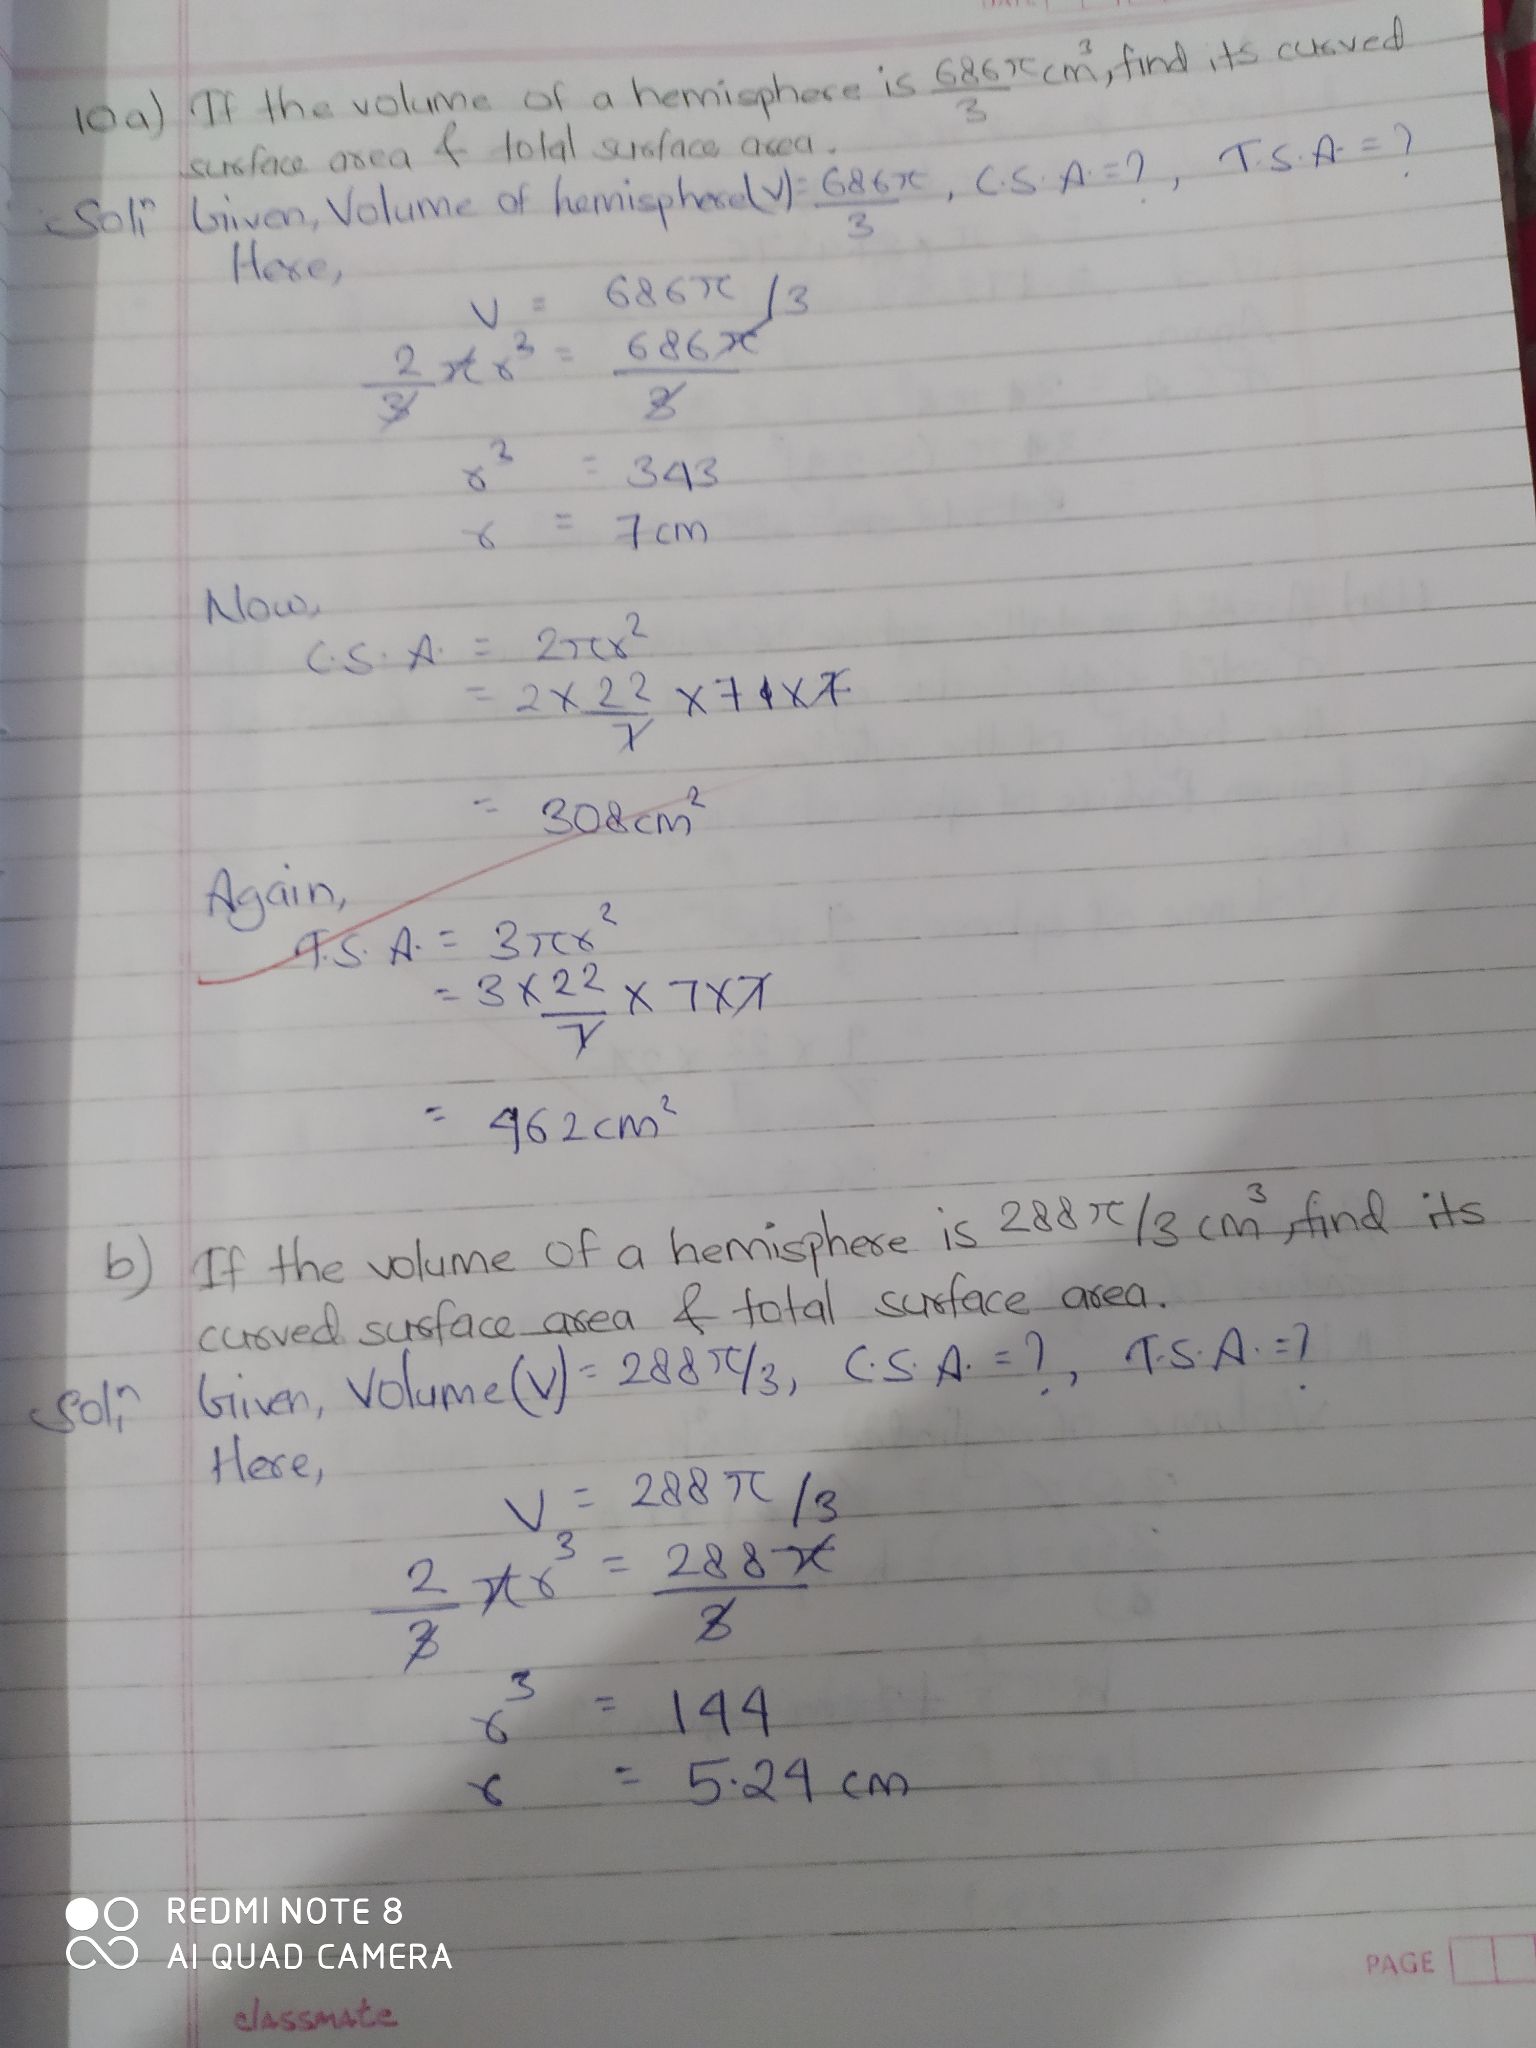 10a) If the volume of a hemisphere is 686π/3 cm³, find its curved
surface area & total surface area.
Solⁿ Given, Volume of hemisphere(V)= 686π/3, C.S.A.=?, T.S.A.=?
Here,
V = 686π/3
2/3 πr³ = 686π/3
r³ = 343
r = 7cm
Now,
C.S.A. = 2πr²
= 2×22/7×7×7
= 308cm²
Again,
T.S.A. = 3πr²
= 3×22/7×7×7
= 462cm²
b) If the volume of a hemisphere is 288π/3 cm³, find its
curved surface area & total surface area.
Solⁿ Given, Volume(V)= 288π/3, C.S.A.=?, T.S.A.=?
Here,
V = 288π/3
2/3 πr³ = 288π/3
r³ = 144
r = 5.24 cm
REDMI NOTE 8
AI QUAD CAMERA
PAGE
classmate